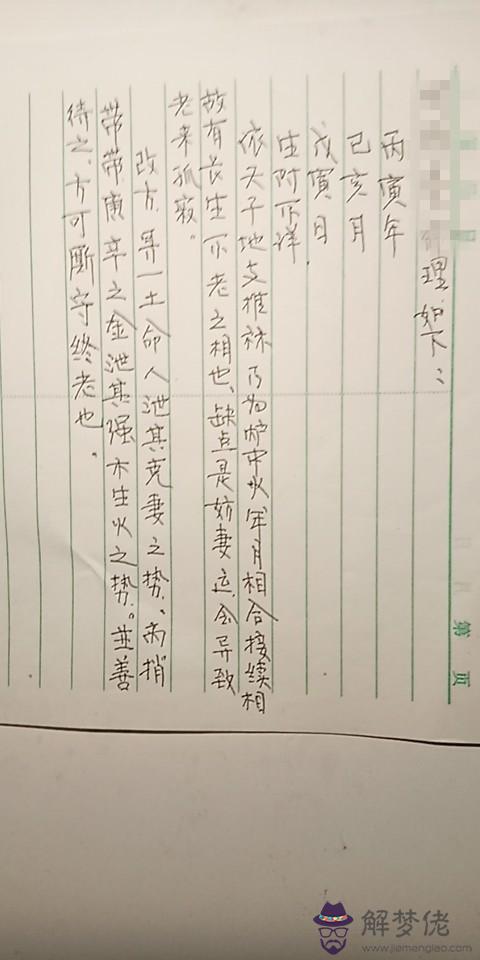 理如下：
丙寅年
己亥月
戊寅日
生时不详.
依天干地支推袜乃为炉中火年月相合接续相
故有长生不老之相也、缺点是妨妻运.会导致
老来孤寂。
改方.寻一土命人泄其克妻之势、而捎
带带庚辛之金泄其强木生火之势。並善
待之、方可断守终老也.
第 页
解梦佬
www.jiemenglao.com